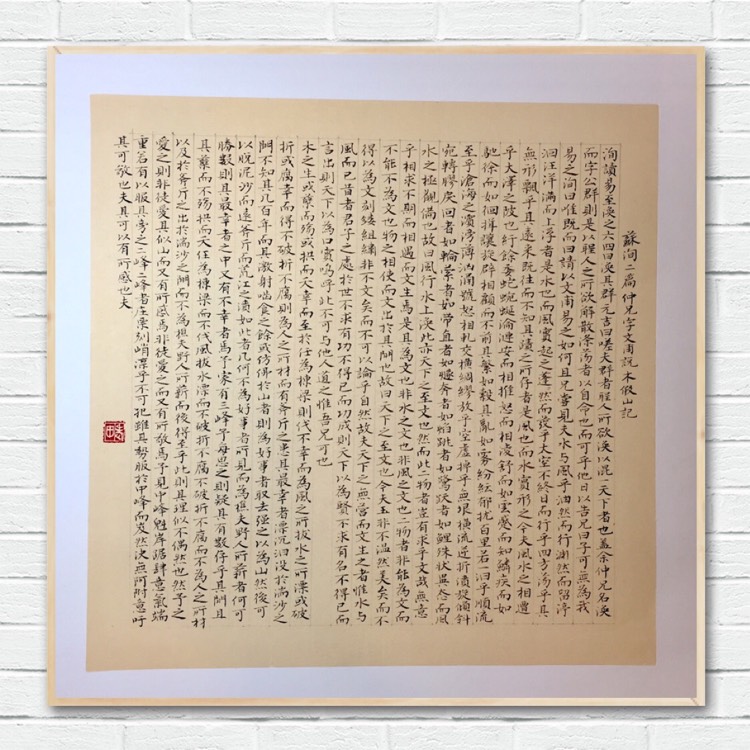 蘇洵二篇仲兄字文甫說木假山記
洵讀易至渙之六四曰渙其群元吉曰嗟夫群者聖人所欲渙以混一天下者也蓋余仲兄名渙
而字公群則是以聖人之所欲解散滌蕩者以自命也而可乎他日以告兄曰子可無為我
易之洵曰唯既而曰請以文甫易之如何且兄嘗見夫水與風乎油然而行淵然而留渟
洄汪洋滿而上浮者是水也而風實起之蓬然而發乎太空不終日而行乎四方蕩乎其
無形飄乎其遠來既往而不知其迹之所存者是風也而水實形之今夫風水之相遭
乎大澤之陂也紆餘委蛇蜿蜒淪漣安而相推怒而相凌舒而如雲蹙而如鱗疾而如
馳徐而如徊揖讓旋辟相顧而不前其繁如縠其亂如霧紛紜郁擾百里若一汩乎順流
至乎滄海之濱滂薄洶涌號怒相軋交橫綢繆放乎空虛掉乎無垠橫流逆折濆旋傾側
宛轉膠戾回者如輪縈者如帶直者如燧奔者如焰跳者如鷺躍者如鯉殊狀異態而風
水之極觀備也故曰風行水上渙此亦天下之至文也然而此二物者豈有求乎文哉無意
乎相求不期而相遇而文生焉是其為文也非水之文也非風之文也二物者非能為文而
不能不為文也物之相使而文出於其間也故曰天下之至文也今夫玉非不溫然美矣而不
得以為文刻鏤組繡非不文矣而不可以論乎自然故夫天下之無營而文生之者惟水與
風而已昔者君子之處於世不求有功不得已而功成則天下以為賢不求有名不得已而
言出則天下以為口實嗚乎此不可與他人道之惟吾兄可也
木之生或蘖而殤或拱而夭幸而至於任為棟梁則伐不幸而為風之所拔水之所漂或破
折或腐幸而得不破折不腐則為人之所材而有斧斤之患其最幸者漂沉汩沒於湍沙之
間不知其几百年而其激射嚙食之餘或仿佛於山者則為好事者取去强之以為山然後可
以脫泥沙而遠斧斤而荒江之濆如此者几何不為好事者所見而為樵夫野人所薪者何可
勝數則其最幸者之中又有不幸者焉予家有三峰予每思之則疑其有數存乎其間且
其蘖而不殤拱而夭任為棟梁而不伐風拔水漂而不破折不腐不破折不腐而不為人之所材
以及於斧斤之出於湍沙之間而不為樵夫野人所薪而後得至乎此則其理似不偶然也然予之
愛之則非徒愛其似山而又有所感焉非徒愛之而又有所敬焉予見中峰魁岸踞肆意氣端
重若有以服其旁之二峰二峰者庄栗刻峭凜乎不可犯雖其勢服於中峰而岌然決無阿附意吁
其可敬也夫其可以有所感也夫